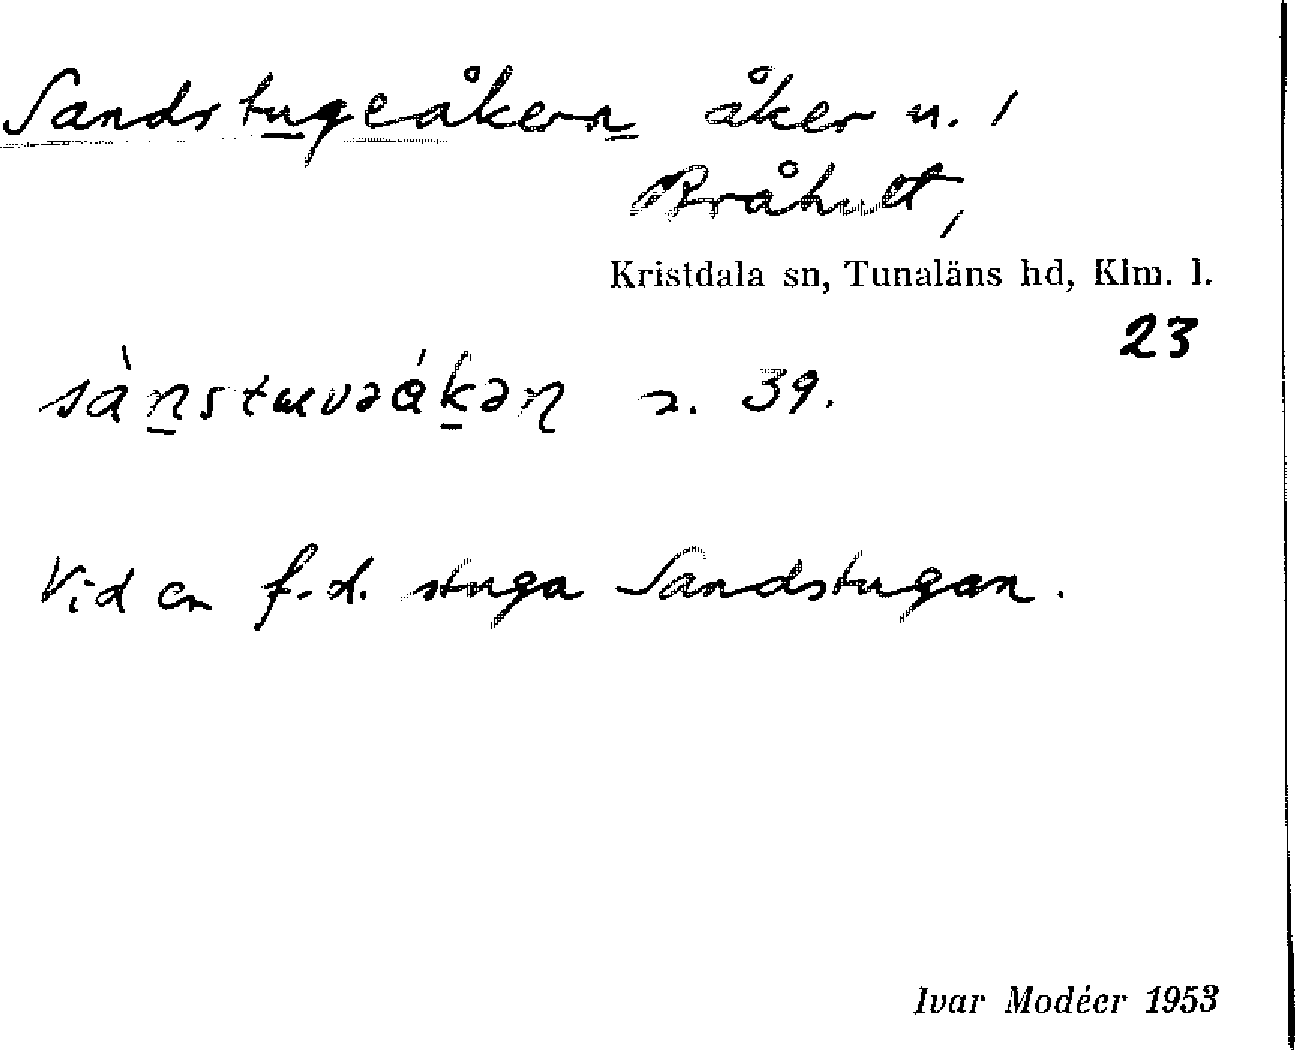 Sandstugeåkern åker n. 1
Bråhult,
Kristdala sn, Tunaläns hd, Klm. l.
23
39.
Vid en f.d. stuga Sandstugan.
Ivar Modéer 1953